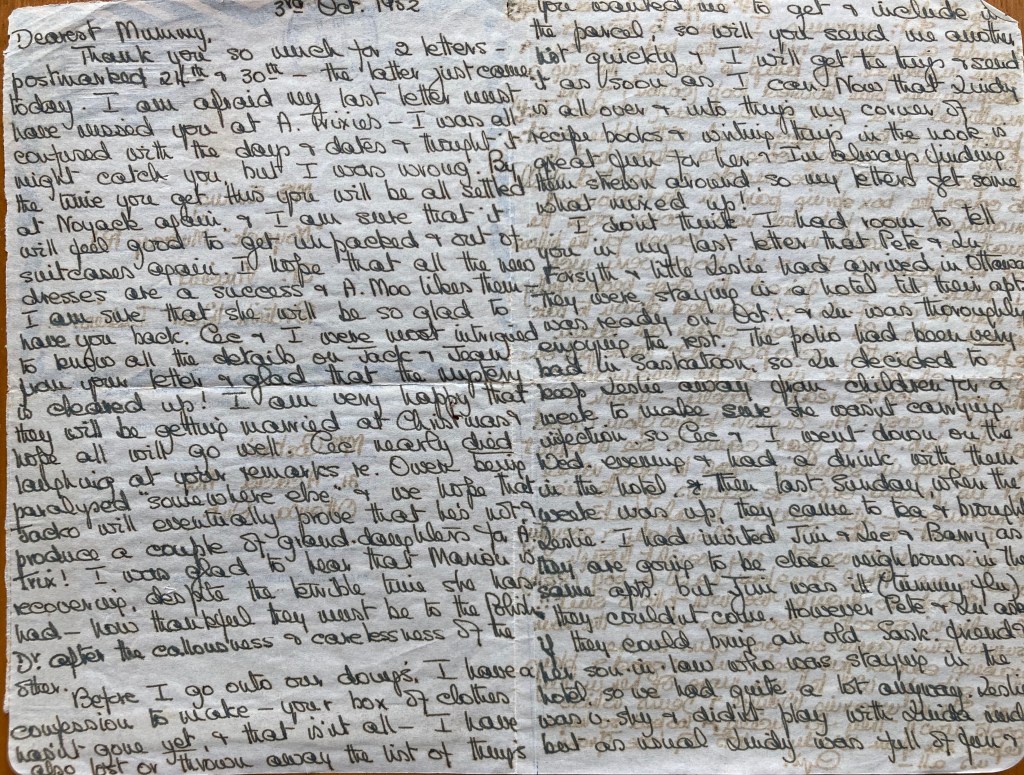 3rd Oct. 1952
Dearest Mummy,
Thank you so much for 2 letters -
postmarked 24th & 30th - the latter just came
today. I am afraid my last letter must
have missed you at A. Trixies - I was all
confused with the days & dates & thought it
might catch you but I was wrong. By
the time you get this you will be all settled
at Noyack again, & I am sure that it
will feel good to get unpacked & out of
suitcases again. I hope that all the new
dresses are a success & A. Moo likes them -
I am sure that she will be so glad to
have you back. Cec & I were most intrigued
to know all the details on Jack & Jean
from your letter & glad that the mystery
is cleared up! I am very happy that
they will be getting married at Christmas &
hope all will go well. Cec nearly died
laughing at your remarks re. Owen being
paralysed "somewhere else" & we hope that
Jacko will eventually prove that he's not &
produce a couple of grand-daughters for A.
Trix! I was glad to hear that Marion is
recovering, despite the terrible time she has
had - how thankful they must be to the Polish
Dr. after the callousness & carelessness of the
other.
Before I go onto our doings, I have a
confession to make - your box of clothes
hasn't gone yet, & that isn't all - I have
also lost or thrown away the list of things
you wanted me to get & include in
the parcel, so will you send me another
list quickly & I will get the things & send
it as soon as I can. Now that Lindy
is all over & into things my corner of
recipe books & writing things in the nook is
great fun for her & I'm always finding
them strewn around, so my letters get some
what mixed up!
I don't think I had room to tell
you in my last letter that Pete &
Forsyth & little Leslie had arrived in Ottawa
they were staying in a hotel till their apt.
was ready on Oct. 1. & was thoroughly
enjoying the rest. The polio had been very
bad in Saskatoon, so decided to
keep Leslie away from children for a
week to make sure she wasn't carrying
infection, so Cec & I went down on the
Wed. evening & had a drink with them
in the hotel. Then last Sunday, when the
week was up, they came to tea & brought
Leslie. I had invited Jim & Lee & Barry as
they are going to be close neighbours in the
same apts. but Jim was ill (tummy flu)
they couldn't come. However Pete & asked
if they could bring an old Sask. friend &
her son-in-law who was staying in the
hotel, so we had quite a lot anyway. Leslie
was v. shy & didn't play with Linda much
but as usual Lindy was full of fun &